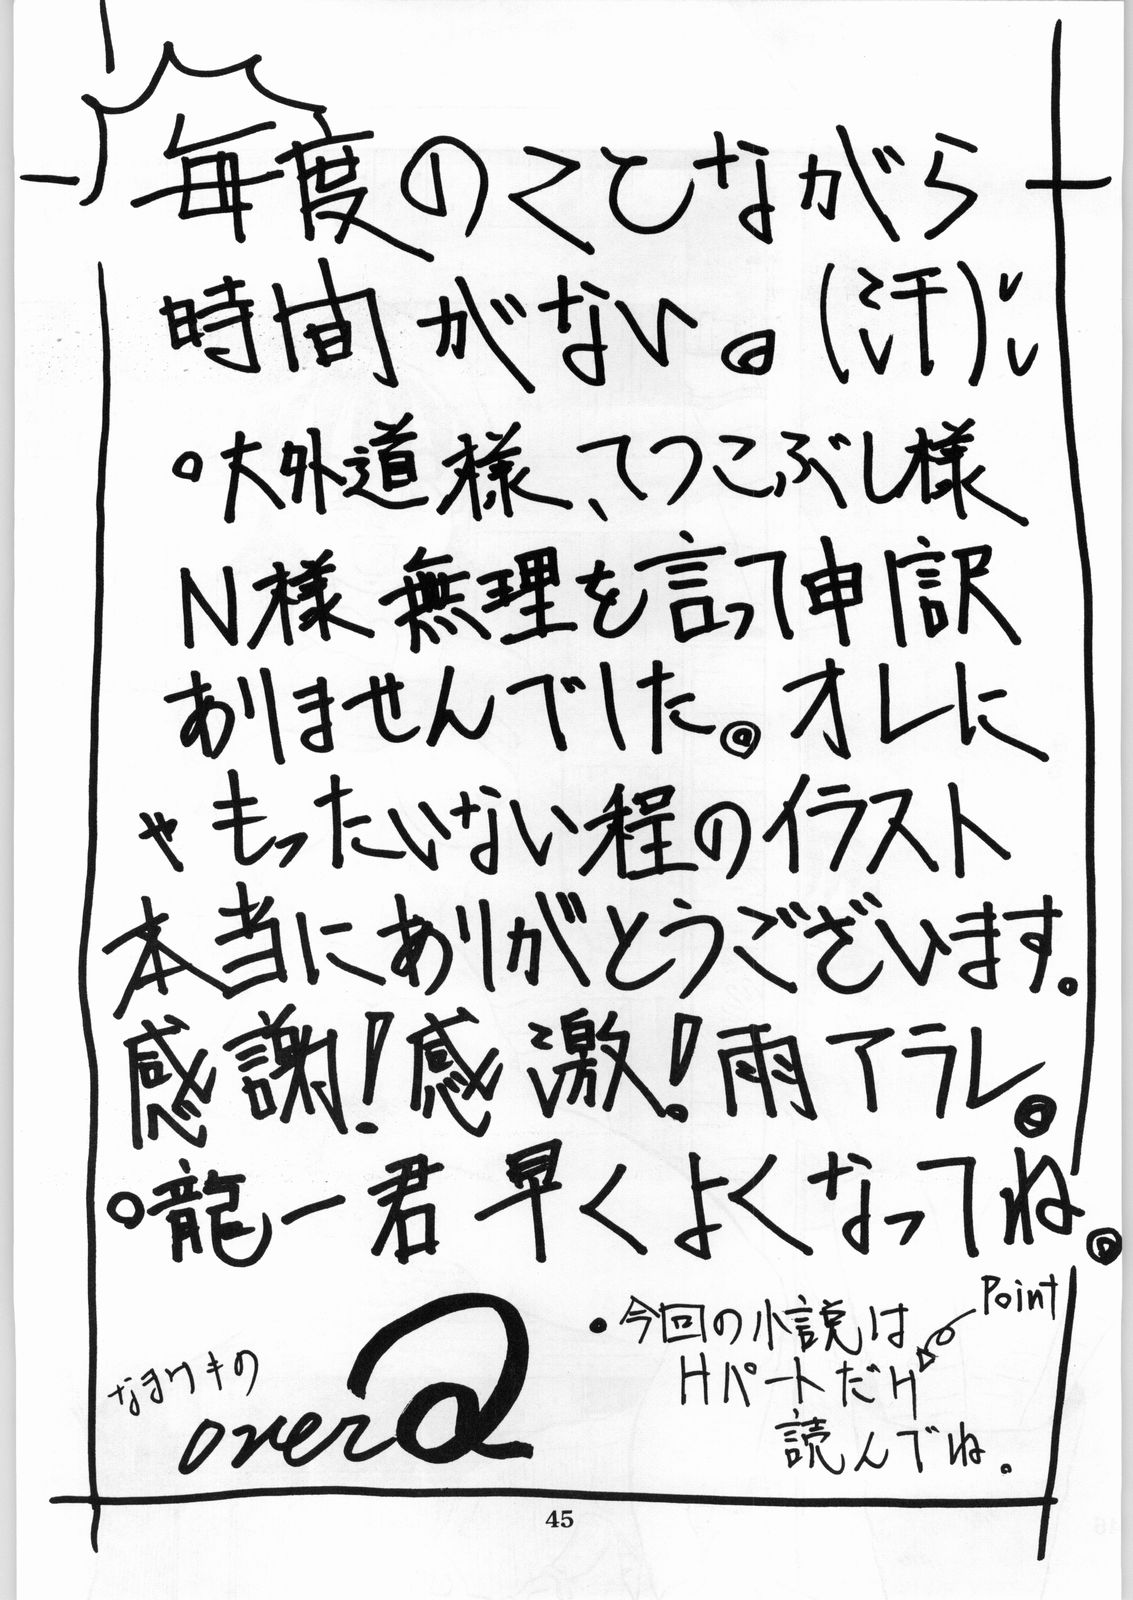 毎度のことながら
時間がない。(汗)
大外道様、てつこぶし様
N様 無理を言って申し訳
ありませんでした。オレに
ゃもったいない程のイラスト
本当にありがとうございます。
感謝!感激!雨アラレ。
龍一君 早くよくなってね。
なまけもの
over Q
・今回の小説は
Hパートだけ
読んでね。
Point
45